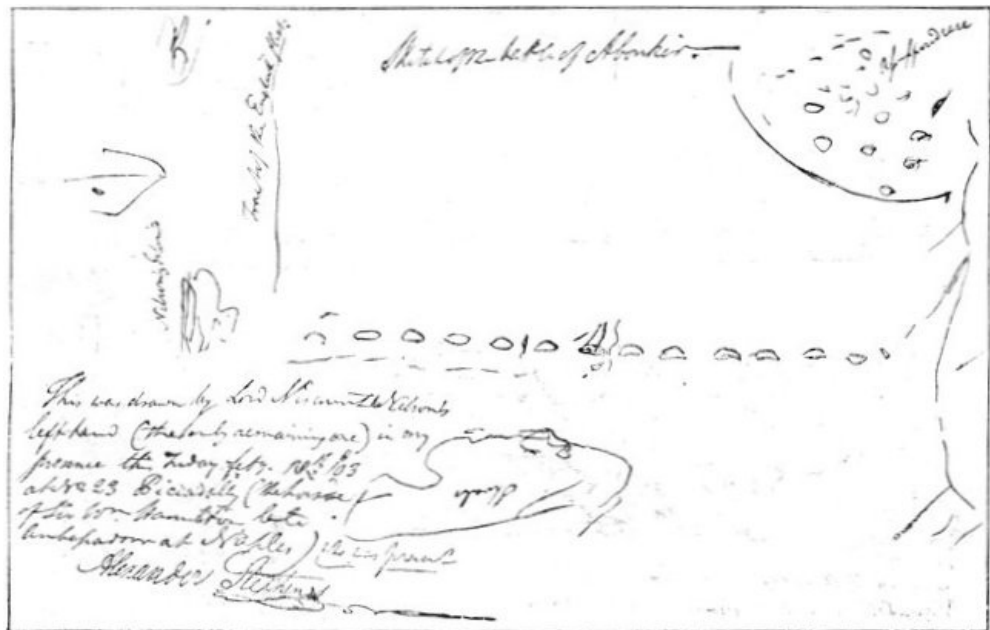 Sketch of the battle of Aboukir.
Track of the English fleet
Nelson's Island
This was drawn by Lord Viscount Nelson's
left hand (the only remaining one) in my
presence this Friday feby. 18th 1803
at No 23 Piccadilly (the house
of Sir Wm Hamilton late
Ambassador at Naples) who was present
Alexander Stephens
Shoals